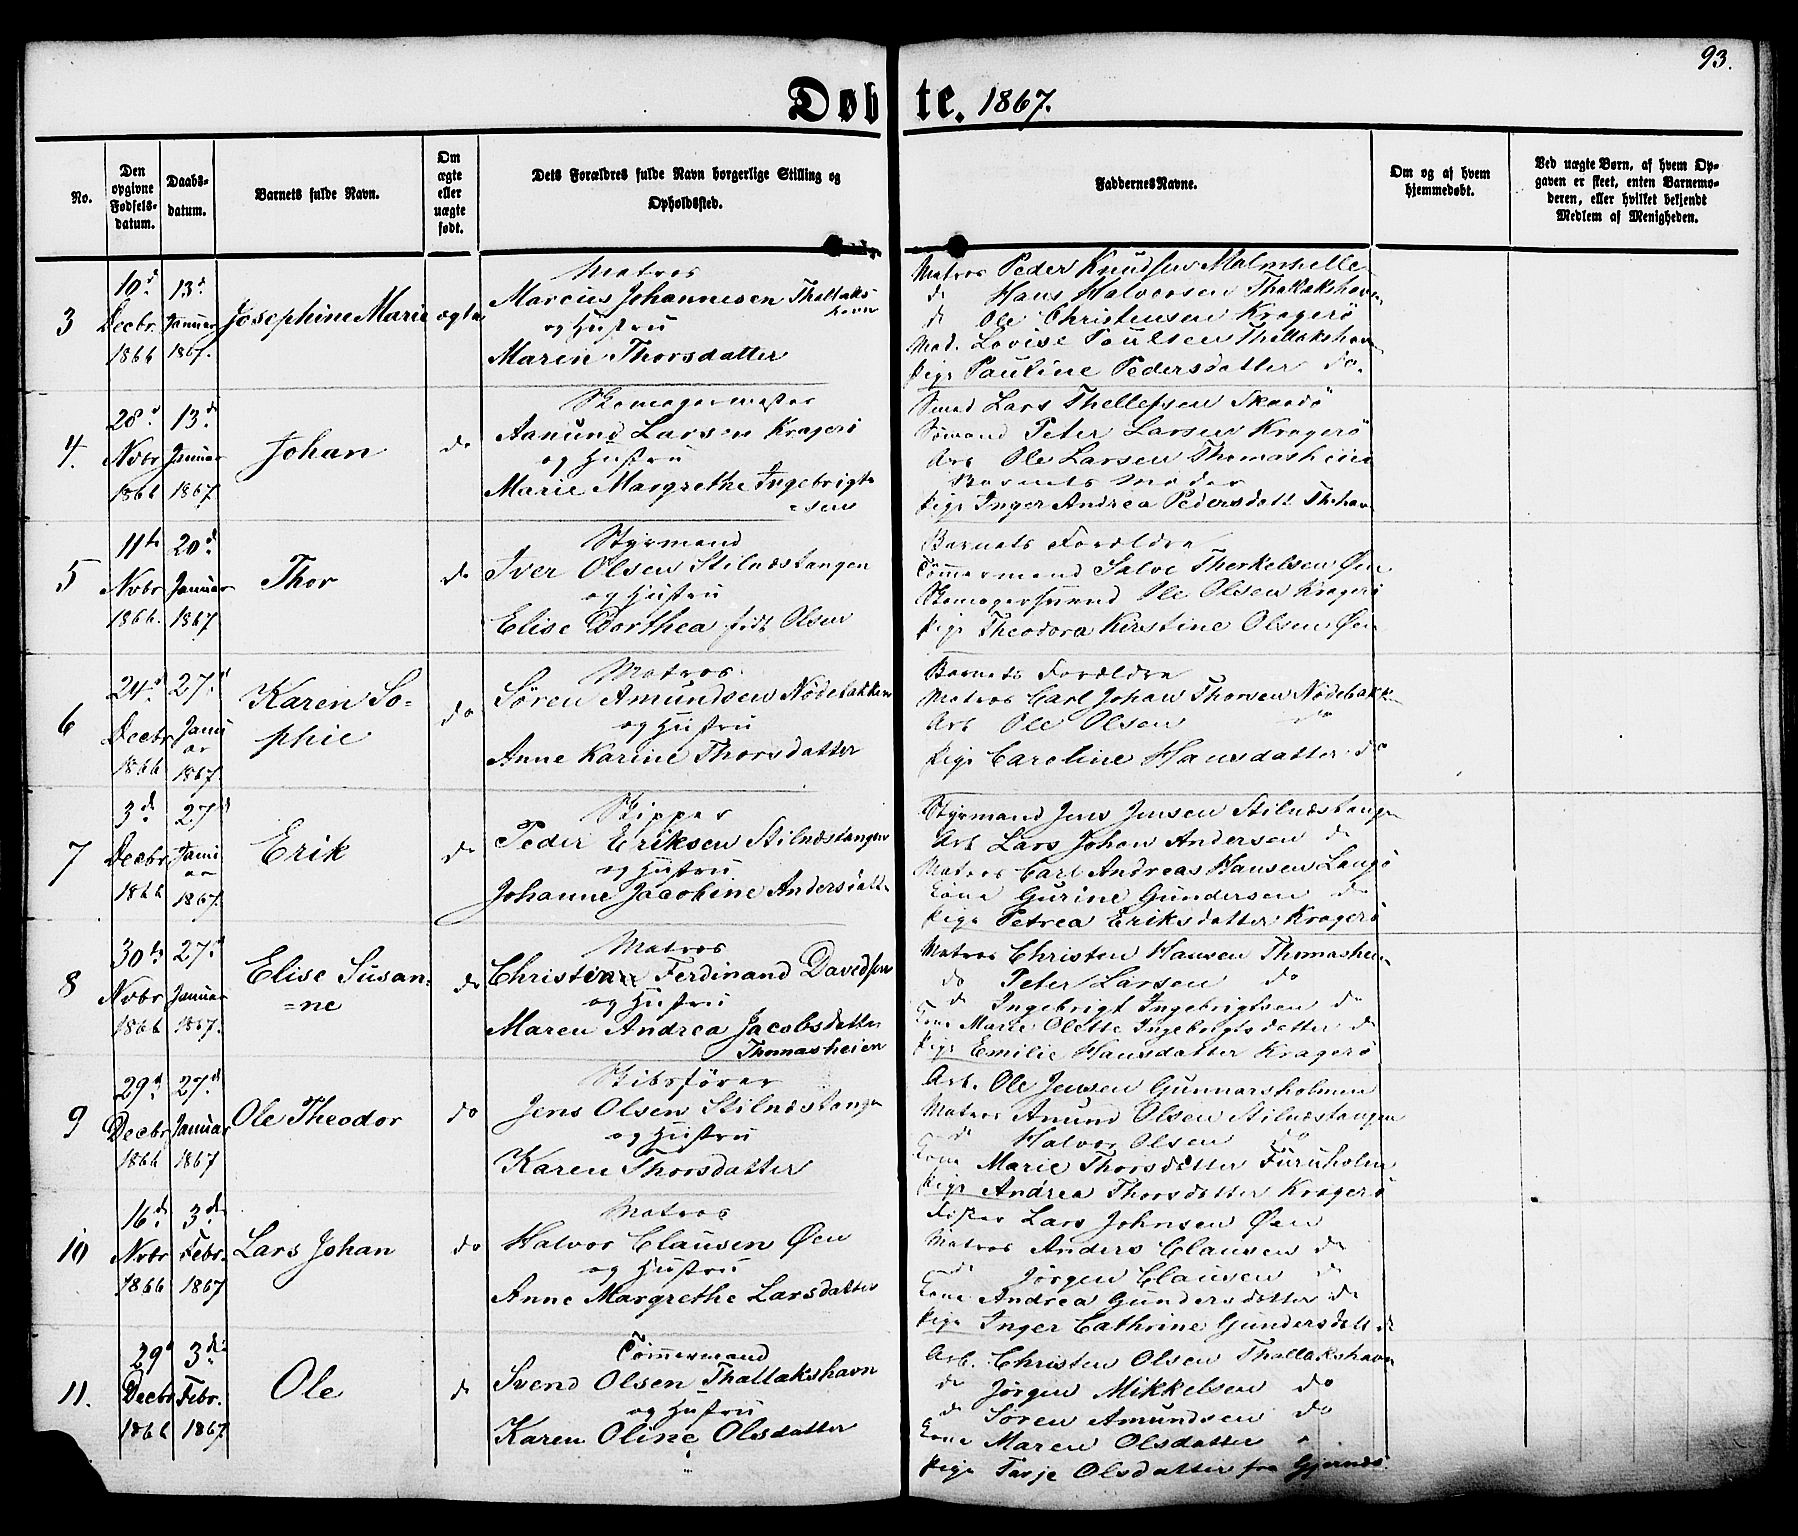 93.
Døbte. 1867.
No.
Den opgivne Fødselsdatum.
Daabsdatum.
Barnets fulde Navn.
Om ægte eller uægte født.
Dets Forældres fulde Navn borgerlige Stilling og Opholdssted.
Faddernes Navne.
Om og af hvem hjemmedøbt.
Ved uægte Børn, af hvem Opgaven er skeet, enten Barnemoderen, eller hvilket bekjendt Medlem af Menigheden.
3
19d Decbr 1866
13d Januar 1867.
Josephine Marie
ægte
Matros
Marcus Johannesen Thallakshavn
og Hustru
Maren Thorsdatter
Matros Peder Knudsen Malmhelle
do Hans Halvorsen Thallakshavn
do Ole Christensen Kragerö
Mad. Lovise Poulsen Thallakshavn
Pige Pauline Pedersdatter do.
4.
28d Nvbr 1866
13d Januar 1867
Johan
do
Skomagermester
Aanund Larsen Kragerö
og Hustru
Marie Margrethe Ingebrigt-
=sen
Smed Lars Thellefsen Skaadö
Sömand Peter Larsen Kragerö
Arb Ole Larsen Thomasheien
Barnets Moder
Pige Inger Andrea Pedersdatt Thhavn
5
11te Nvbr 1866.
20d Januar 1867
Thor
do
Styrmand
Iver Olsen Stilnæstangen
og Hustru
Elise Dorthea født Olsen
Barnets Forældre
Tömmermand Salve Therkelsen Øen
Skomagersvend Ole Olsen Kragerö
Pige Theodora Kirstine Olsen Øen
6
24d Decbr 1866
27d Januar 1867.
Karen So-
phie
do
Matros
Sören Amundsen Nödebakken
og Hustru
Anne Karine Thorsdatter
Barnets Forældre
Matros Carl Johan Thorsen Nödebakk
Arb Ole Olsen do
Pige Caroline Hansdatter do
7
3d Decbr 1866
27d Januar 1867.
Erik
do
Skipper
Peder Eriksen Stilnæstangen
og Hustru
Johanne Jacobine Andersdatt
Styrmand Jens Jensen Stilnæstangen
Arb Lars Johan Andersen do
Matros Carl Andreas Hansen Langö
Kone Gurine Gundersen do
Pige Petrea Eriksdatter Kragerö
8
30te Nvbr 1866
27d Januar 1867.
Elise Susan-
=ne
do
Matros
Christian Ferdinand Davidsen
og Hustru
Maren Andrea Jacobsdatter
Thomasheien
Matros Christen Hansen Thomasheien
do Peter Larsen do
do Ingebrigt Ingebrigtsen do
Kone Marie Olette Ingebrigtsdatter do
Pige Emilie Hansdatter Kragerö
9
29d Decbr 1866
27d Januar 1867
Ole Theodor
do
Skibsförer
Jens Olsen Stilnæstangen
og Hustru
Karen Thorsdatter
Arb. Ole Jensen Gunnarsholmen
Matros Amund Olsen Stilnæstangen
do Halvor Olsen do
Kone Marie Thorsdatter Furuholm
Pige Andrea Thorsdatter Kragerö
10
16d Nvbr 1866
3d Febr. 1867
Lars Johan
do
Matros
Halvor Clausen Øen
og Hustru
Anne Margrethe Larsdatter
Fisker Lars Johnsen Øen
Matros Anders Clausen do
do Jörgen Clausen do
Kone Andrea Gundersdatter do
Pige Inger Cathrine Gundersdatt do
11.
29d Decbr 1866
3die Febr. 1867
Ole
do
Tömmermand
Svend Olsen Thallakshavn
og Hustru
Karen Oline Olsdatter
Arb. Christen Olsen Thallakshavn
do Jørgen Mikkelsen do
do Sören Amundsen do
Kone Maren Olsdatter "
Pige Tarje Olsdatter fra